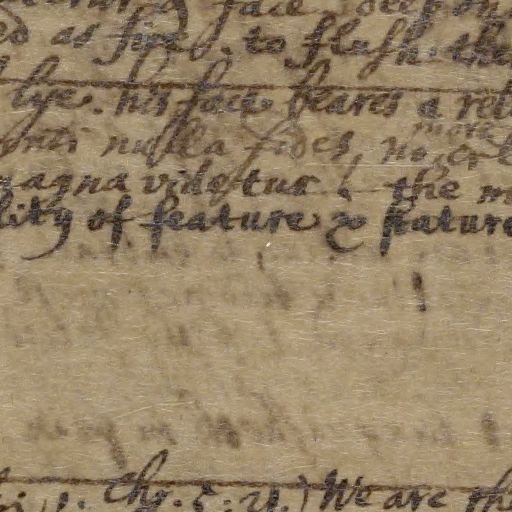 face
as fire. to flush the
lye. his face beares a rel
nulla fides, no more
magna videtur, the m
lity of feature & stature
1. Chr. 5: 21.) We are th